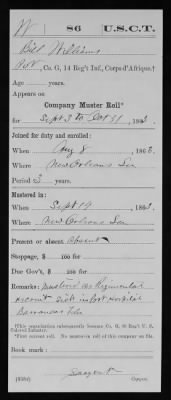 W 86 U.S.C.T.
Bill Williams
Pvt, Co. G, 14 Reg't Inf., Corps d'Afrique.†
Age years.
Appears on
Company Muster Roll*
for Sept 3 to Oct 31, 1863.
Joined for duty and enrolled:
When Aug 8, 1863.
Where New Orleans La
Period 3 years.
Mustered in:
When Sept 19, 1863.
Where New Orleans La
Present or absent Absent
Stoppage, $ 100 for
Due Gov't, $ 100 for
Remarks: Mustered as Regimental
recruit Sick in Post Hospital
Barrancas Fla
†This organization subsequently became Co. G, 86 Reg't U. S.
Colored Infantry.
*First current roll. No muster-in roll of this company on file.
Book mark:
(858d) Copyist.